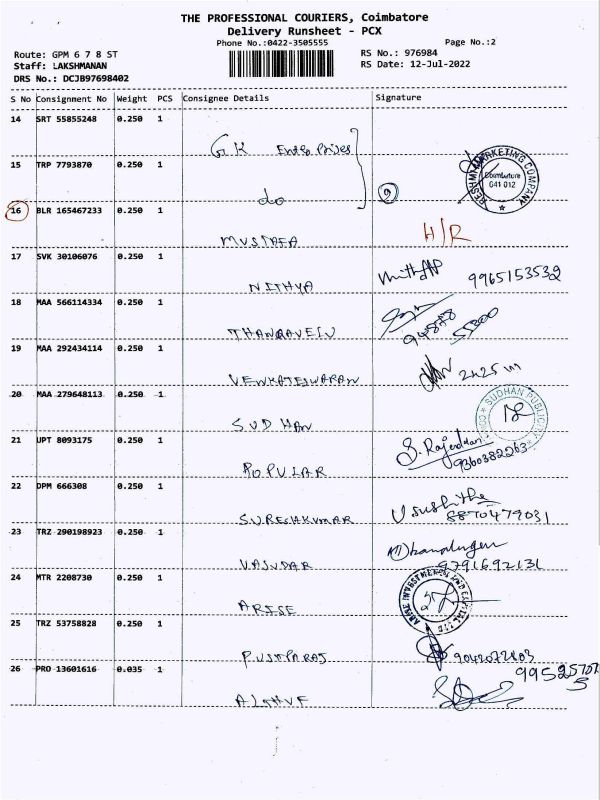 THE PROFESSIONAL COURIERS, Coimbatore
Delivery Runsheet - PCX
Phone No.:0422-3505555 Page No.:2
Route: GPM 6 7 8 ST RS No.: 976984
Staff: LAKSHMANAN RS Date: 12-Jul-2022
DRS No.: DCJB97698402
S No Consignment No Weight PCS Consignee Details Signature
14 SRT 55855248 0.250 1
G.K Enterprises
15 TRP 7793870 0.250 1
do 9
RESHMI MARKETING COMPANY
Coimbatore
641 012
16 BLR 165467233 0.250 1
MUSTAFA H/R
17 SVK 30106076 0.250 1
NITHYA 9965153532
18 MAA 566114334 0.250 1
THANGAVELU 94878 55300
19 MAA 292434114 0.250 1
VENKATESWARAN
20 MAA 279648113 0.250 1
SUDHAN
SUDHAN PUBLICITY
21 UPT 8093175 0.250 1
POPULAR S. Rajendran 9360382263
22 DPM 666308 0.250 1
SURESHKUMAR 8870479031
23 TRZ 290198923 0.250 1
VASUDAR 9791692131
24 MTR 2208730 0.250 1
ARISE
ARISE INVESTMENT AND CAPITAL LTD
25 TRZ 53758828 0.250 1
PUSHPARAJ 9042072803
26 PRO 13601616 0.035 1